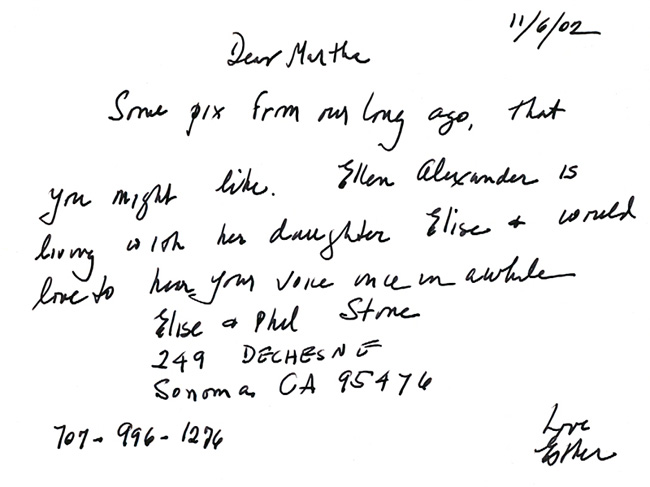 11/6/02
Dear Martha
Some pix from our long ago, that
you might like. Ellen Alexander is
living with her daughter Elise & would
love to hear your voice once in awhile
Elise & Phil Stone
249 DECHESNE
Sonoma CA 95476
707-996-1276
Love
Esther